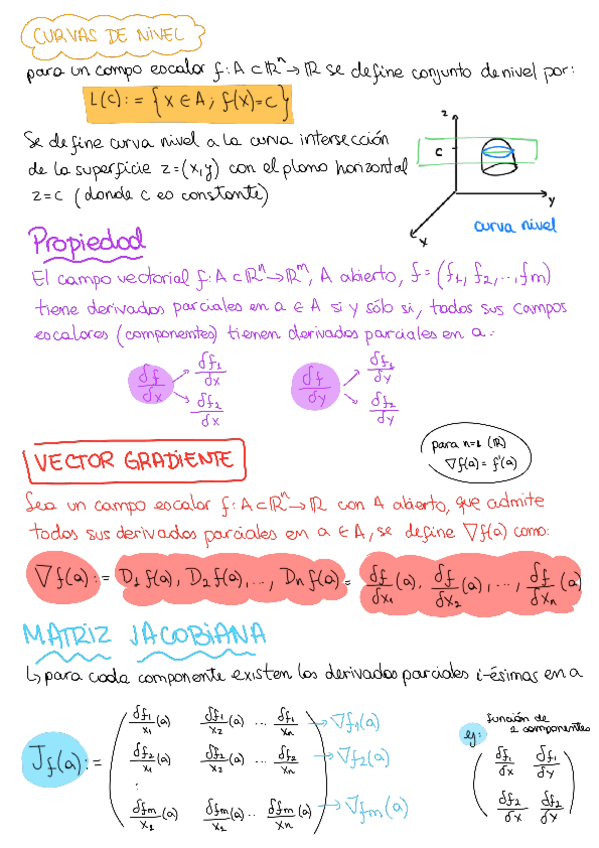 CURVAS DE NIVEL
para un campo escalar f: A ⊂ ℝⁿ → ℝ se define conjunto de nivel por:
L(c) := { x ∈ A ; f(x) = c }
Se define curva nivel a la curva intersección
de la superficie z=(x,y) con el plano horizontal
z=c (donde c es constante)
z
c
y
x
curva nivel
Propiedad
El campo vectorial f: A ⊂ ℝⁿ → ℝᵐ, A abierto, f = (f₁, f₂, .., fm)
tiene derivadas parciales en a ∈ A si y sólo si, todos sus campos
escalares (componentes) tienen derivadas parciales en a:
δf/δx → δf₁/δx
→ δf₂/δx
δf/δy → δf₁/δy
→ δf₂/δy
VECTOR GRADIENTE
para n=1 (ℝ)
∇f(a) = f'(a)
Sea un campo escalar f: A ⊂ ℝⁿ → ℝ con A abierto, que admite
todas sus derivadas parciales en a ∈ A, se define ∇f(a) como:
∇f(a) := D₁ f(a), D₂ f(a), ..., Dn f(a) = δf/δx₁ (a), δf/δx₂ (a), ..., δf/δxn (a)
MATRIZ JACOBIANA
↳ para cada componente existen las derivadas parciales i-ésimas en a
Jf(a) :=
δf₁/x₁ (a) δf₁/x₂ (a) ... δf₁/xn → ∇f₁(a)
δf₂/x₁ (a) δf₂/x₂ (a) ... δf₂/xn → ∇f₂(a)
:
δfm/x₂ (a) δfm/x₂ (a) .. δfm/xn (a) → ∇fm(a)
ej:
función de
2 componentes
δf₁/δx δf₁/δy
δf₂/δx δf₂/δy